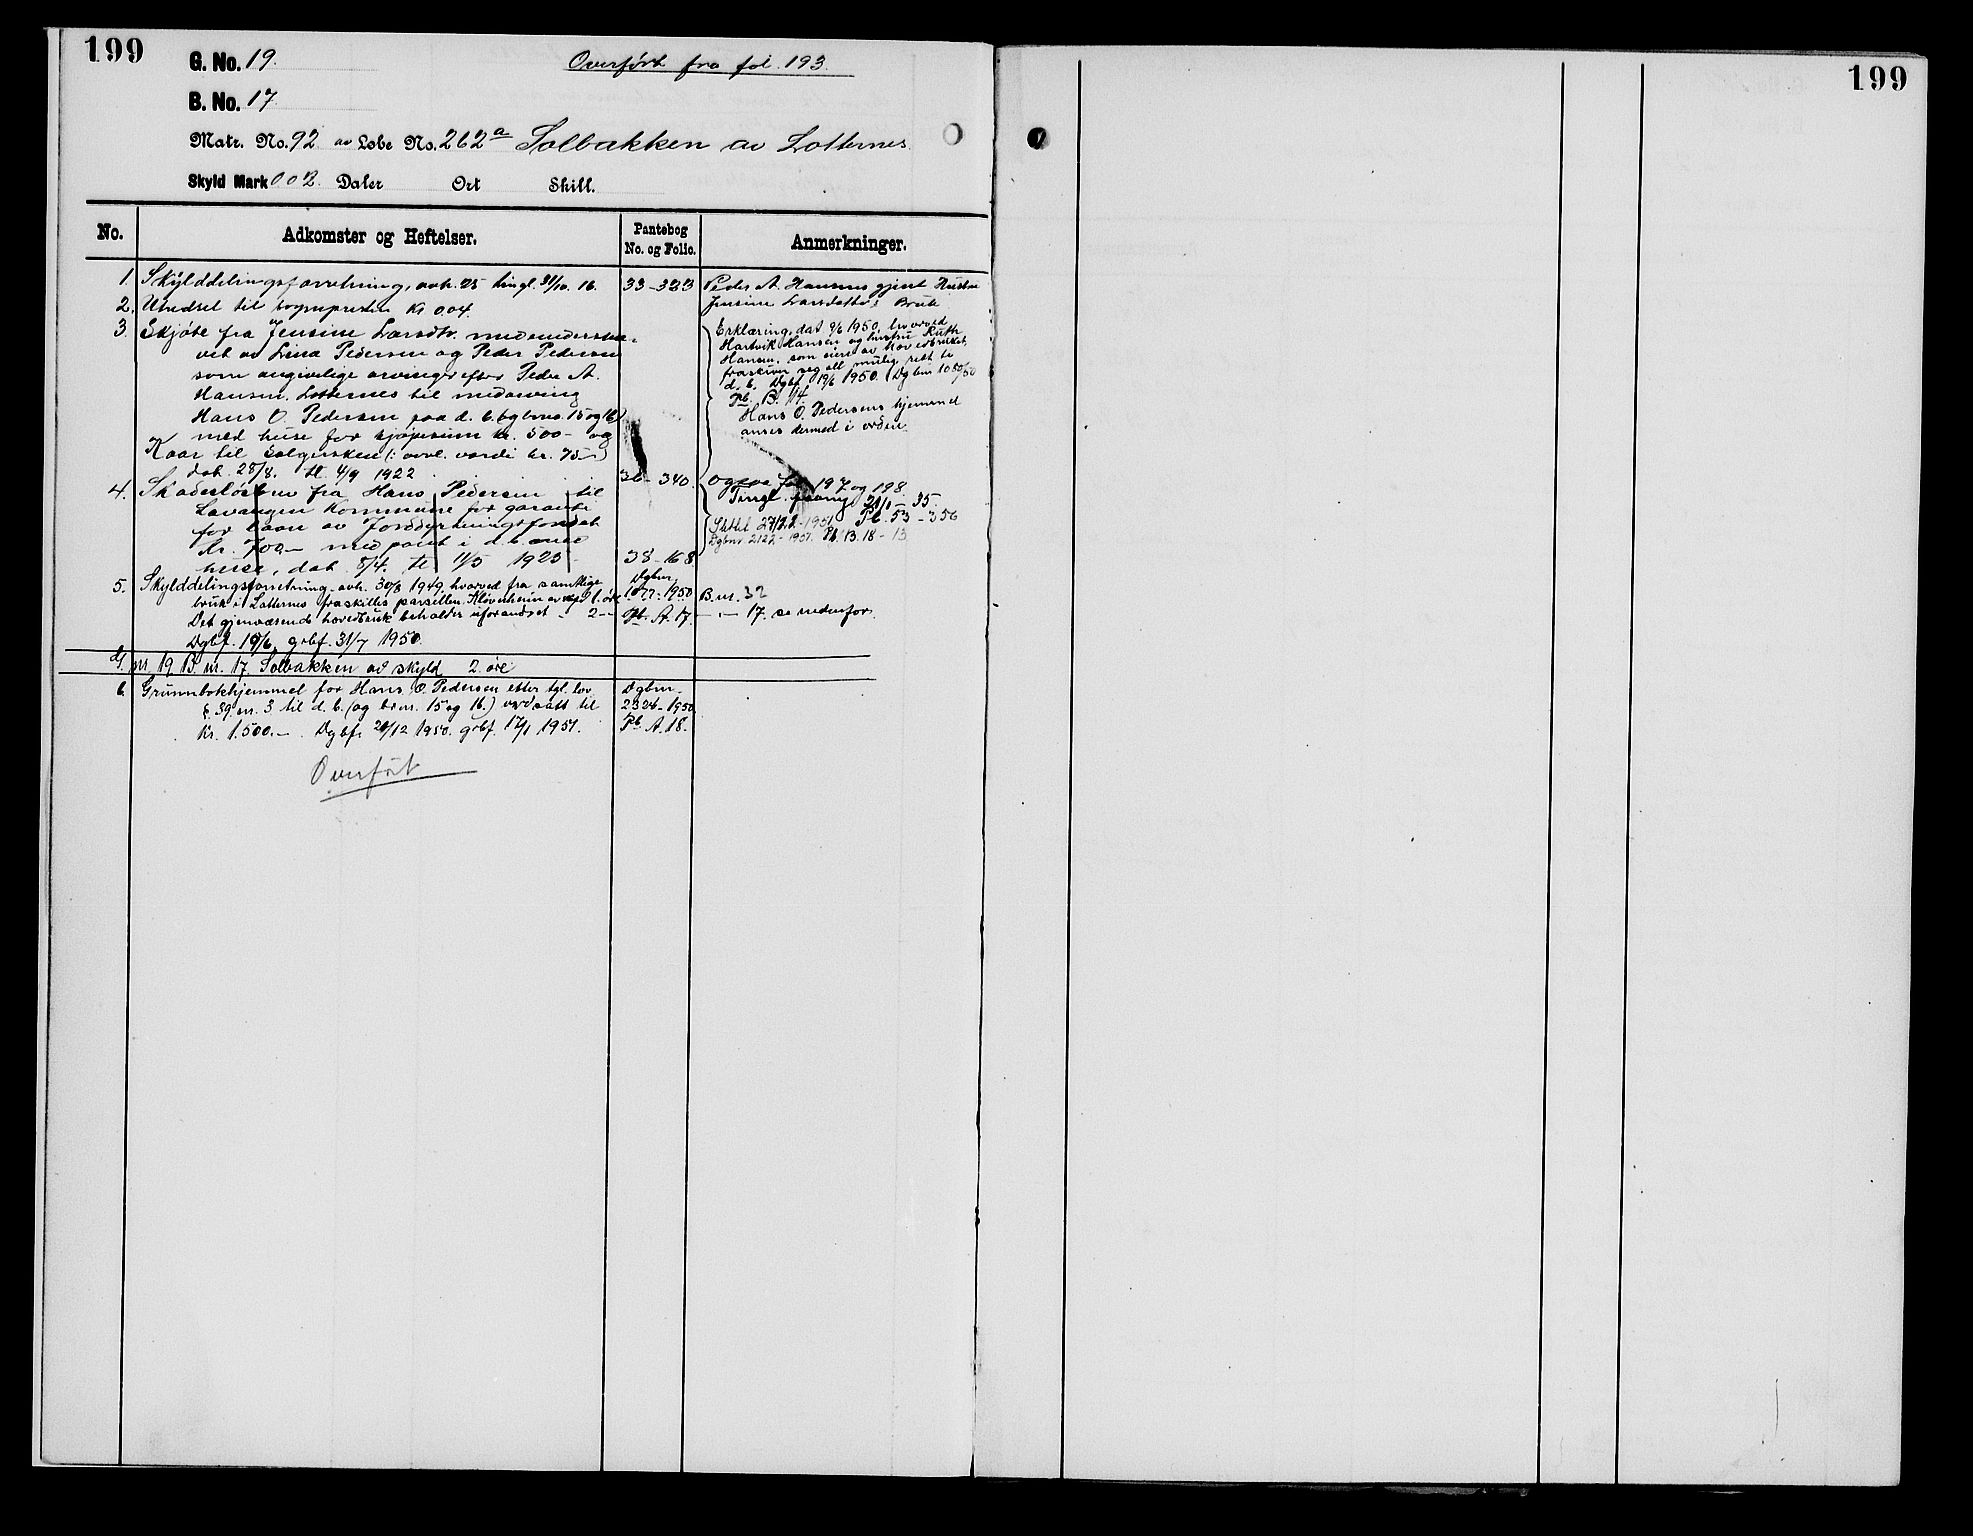 199
G. No. 19.
Overført fra fol. 193.
B. No. 17
Matr. No. 92 av Løbe No. 262a Solbakken av Lotternes
Skyld Mark 002. Daler Ort Skill.
No. Adkomster og Heftelser. Pantebog No. og Folio. Anmerkninger.
1. Skylddelingsforretning, avh. 25 tingl. 31/10. 16. 33-333
2. Utredsel til sognepresten Kr 0.04.
3. Skjøte fra Jensine Larsdtr. medunderskre-
vet av Lina Pedersen og Peder Pedersen
som angivelige arvinger efter Peder A.
Hansen, Lotternes til medarving
Hans O. Pedersen paa d. b. (og brno. 15 og 16)
med huse for kjøpesum kr. 500- og
Kaar til Sælgersken (: aarl. værdi kr. 75-)
dat. 28/8. tl. 4/9 1922. 36-340.
4. Skadesløsbrev fra Hans Pedersen til
Lavangen Kommune for garanti
for laan av Jorddyrkningsfondet
kr. 700,- med pant i d. b. med
huse, dat. 8/4. tl. 11/5 1925. 38-168
5. Skylddelingsforretning avh. 30/8 1949, hvorved fra samtlige
bruk i Lotternes fraskilles parsellen Kløverheim av skyld 1 øre
Det gjenværende hovedbruk beholder uforandret - 2 -
Dgbf. 19/6, grbf. 31/7 1950.
Dgbnr. 1077-1950
Pb. A. 17.
G. nr. 19 B. nr. 17 Solbakken av skyld 2 øre
6. Grunnbokhjemmel for Hans O. Pedersen etter tgl. lov
§. 39 nr. 3 til d. b. (og bnr. 15 og 16.) verdsatt til
Kr. 1.500.-. Dgbf. 20/12 1950. grbf. 17/1 1951.
Dgbnr.
2326-1950
Pb. A. 18.
Overført
Peder A. Hansens gjent Hustru
Jensine Larsdatters Bruk
Erklæring, dat 9/6 1950, hvorved
Hartvik Hansen og hustru Ruth
Hansen, som eiere av hovedbruket,
fraskriver seg all mulig rett til
d. b. Dgbf 19/6 1950. (Dgbnr 1080/50
Pb. B. 14.
Hans O. Pedersens hjemmel
anses dermed i orden.
Ogsaa fol. 197 og 198.
Tingl. paany 21/1-35.
Pb. 53-356
Slettet 27/12-1951
Dgbnr 2122-1951. Pb. B. 18-13
B. nr. 32
- " - 17. se nedenfor.
199